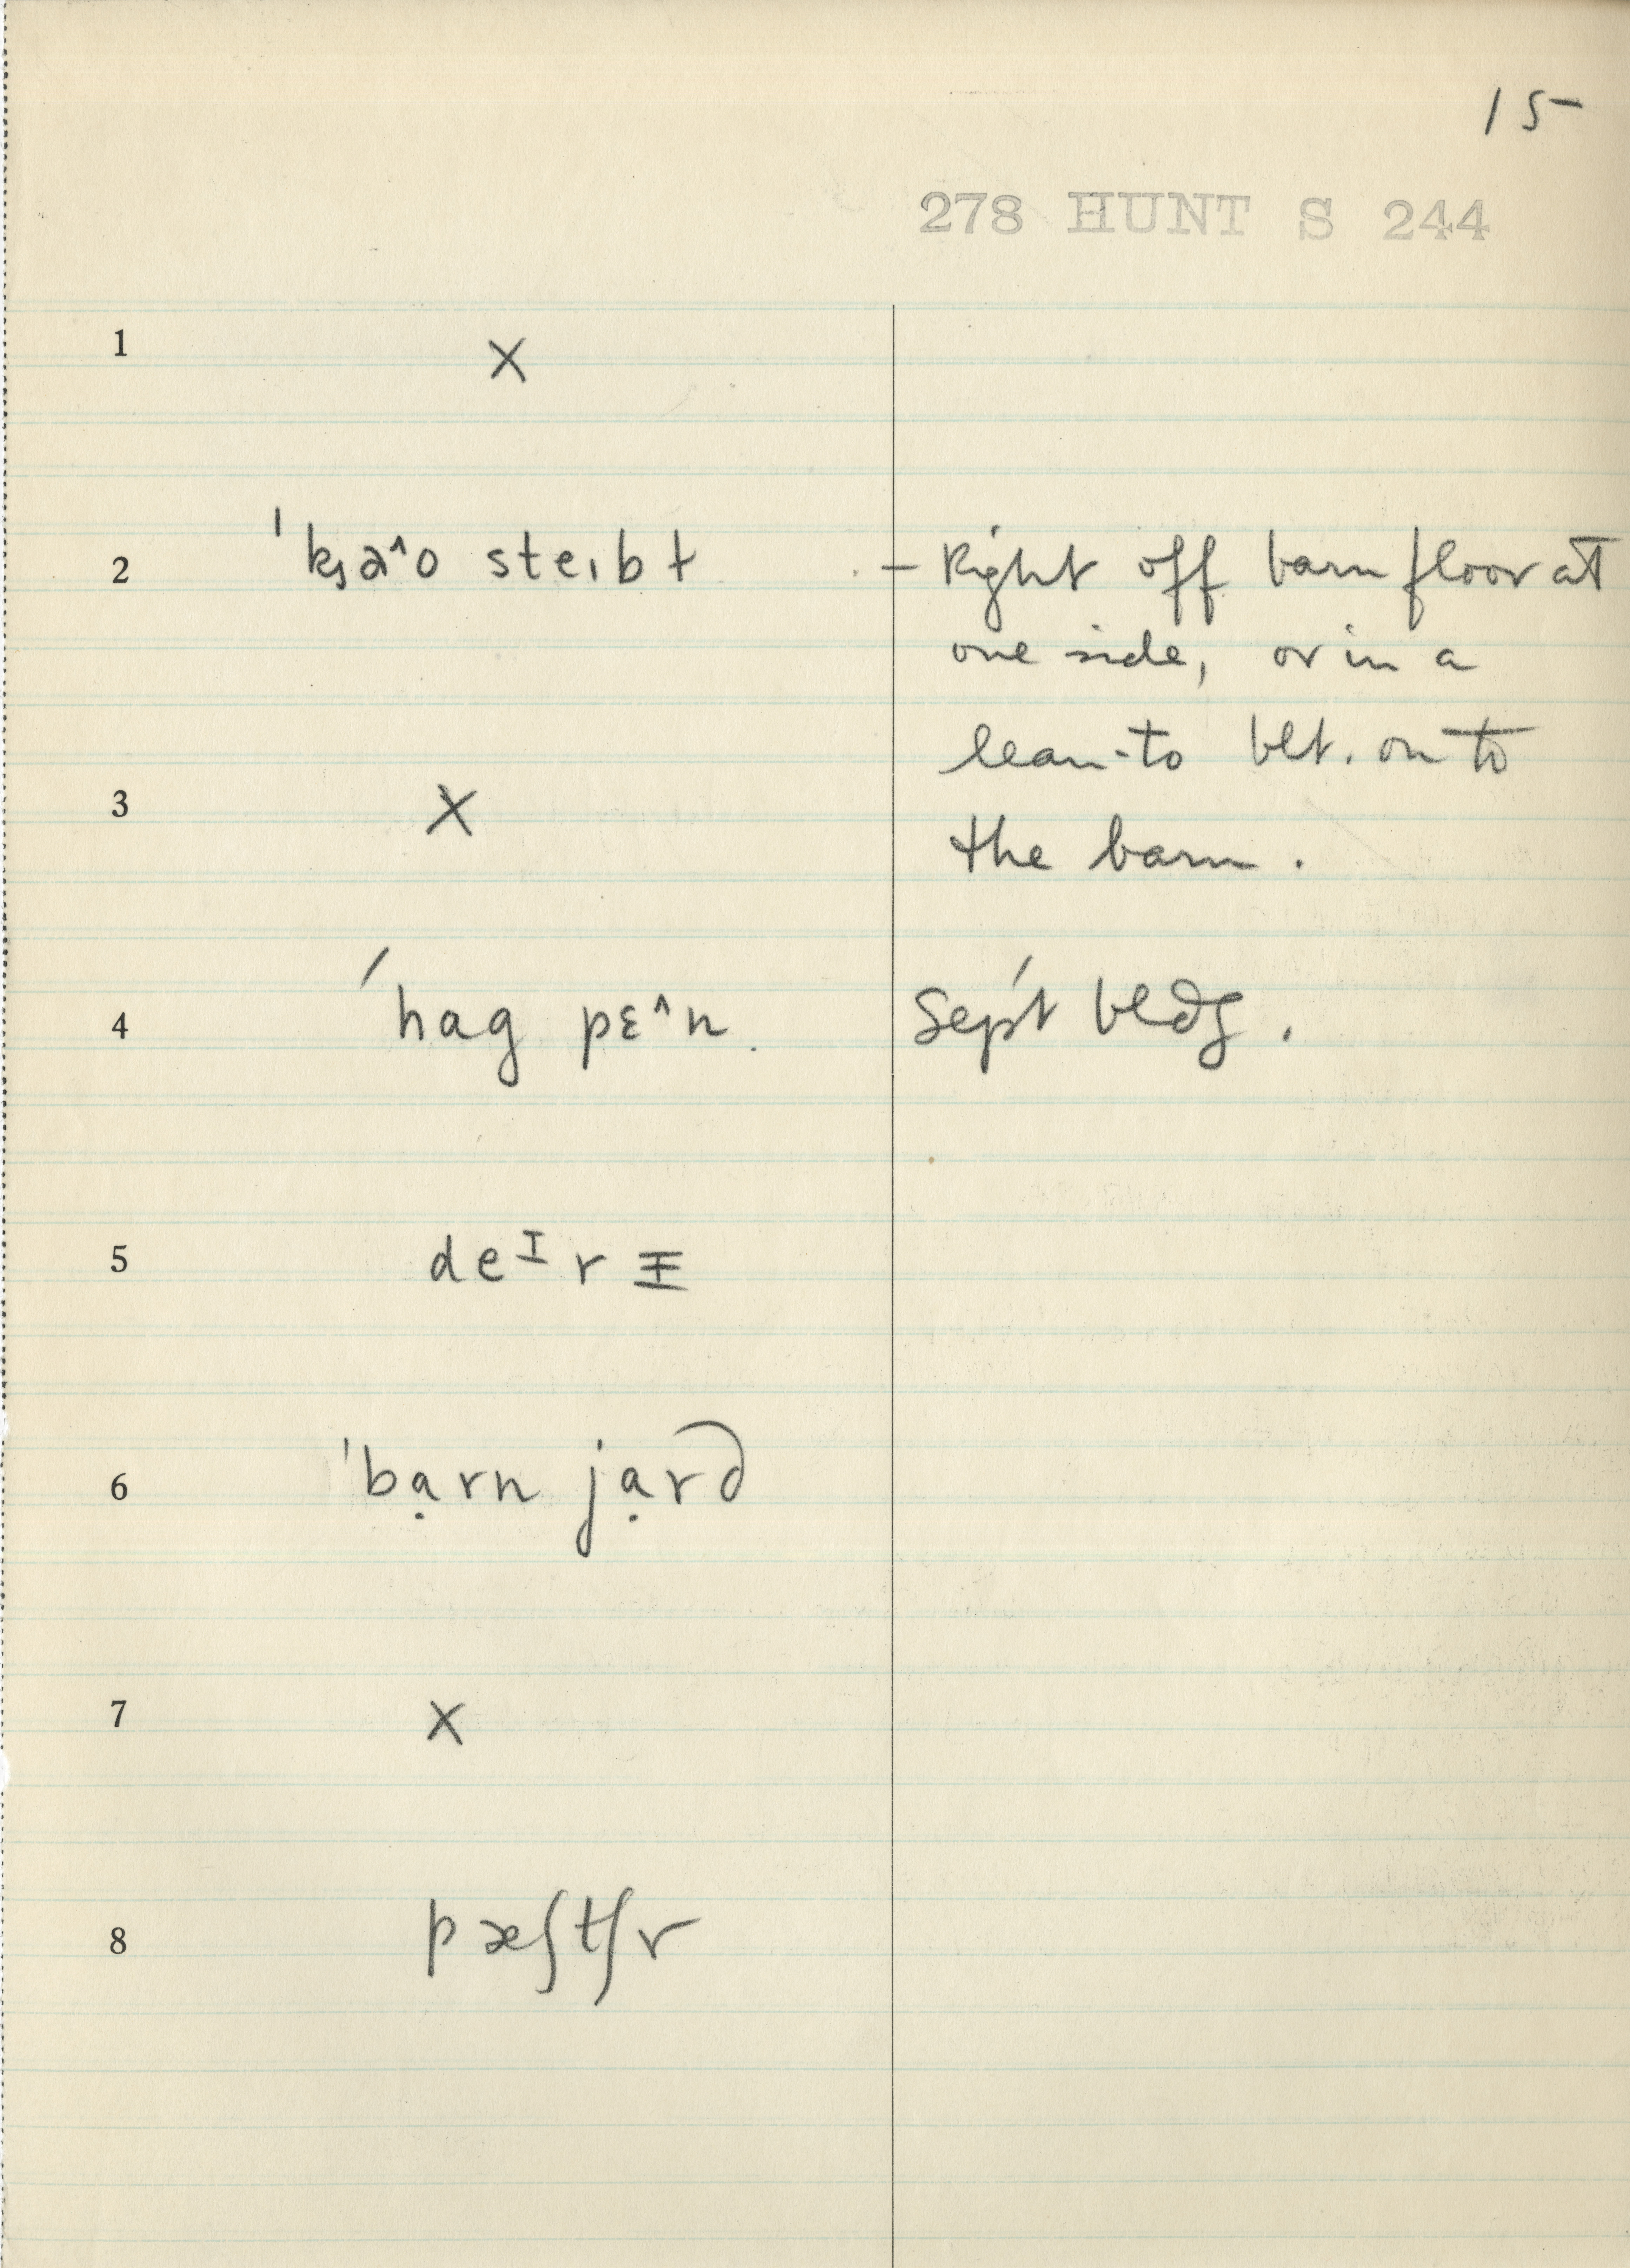 15
278 HUNT S 244
1 X
2 ˈkᶊa^o steɪbɫ – Right off barn floor at
one side, or in a
lean-to blt. on to
3 X
the barn.
4 ˈhag pɛ^n. Sep't bldg.
5 deᴵrɪ
6 ˈbạrn jạrd
7 X
8 pæʃtʃr